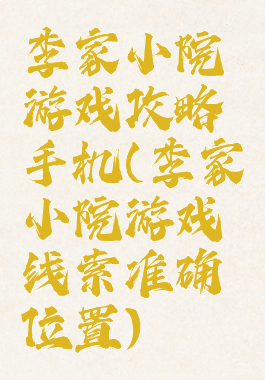 李家小院
游戏攻略
手机(李家
小院游戏
线索准确
位置)